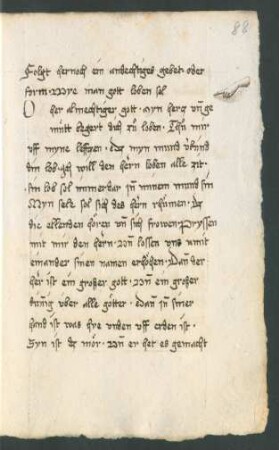 88
Folgt hernoch ein andechtiges gebet oder
form Wye man gott loben sol
O her almechtiger gott myn herg vnd ge
miitt begert dich zu loben Thu mir
vff myne lefzen das myn mund verkund
din lob Ich will den hern loben alle zit
Sin lob sol iimerbar in minem mund sin
Myn sele sol sich des hern rhiimen das
die ellenden horen vnd sich frowen Pryssen
mit mir den hern vnd lossen vns mit
einander sinen namen erhohen Dan der
her ist ein großer gott vnd ein großer
kunig uber alle gotter dan in siner
hand ist was hye unden uff erden ist
Syn ist das mor vnd er het es gemacht